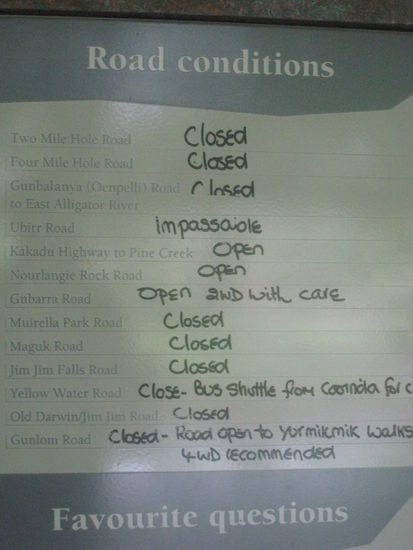 Road conditions
Two Mile Hole Road Closed
Four Mile Hole Road Closed
Gunbalanya (Oenpelli) Road Closed
to East Alligator River
Ubirr Road impassable
Kakadu Highway to Pine Creek OPEN
Nourlangie Rock Road OPEN
Gubarra Road OPEN 2WD with care
Muirella Park Road Closed
Maguk Road Closed
Jim Jim Falls Road Closed
Yellow Water Road Close - Bus shuttle from Cooinda for
Old Darwin/Jim Jim Road Closed
Gunlom Road Closed - Road open to Yurmikmik walks
4WD recommended
Favourite questions